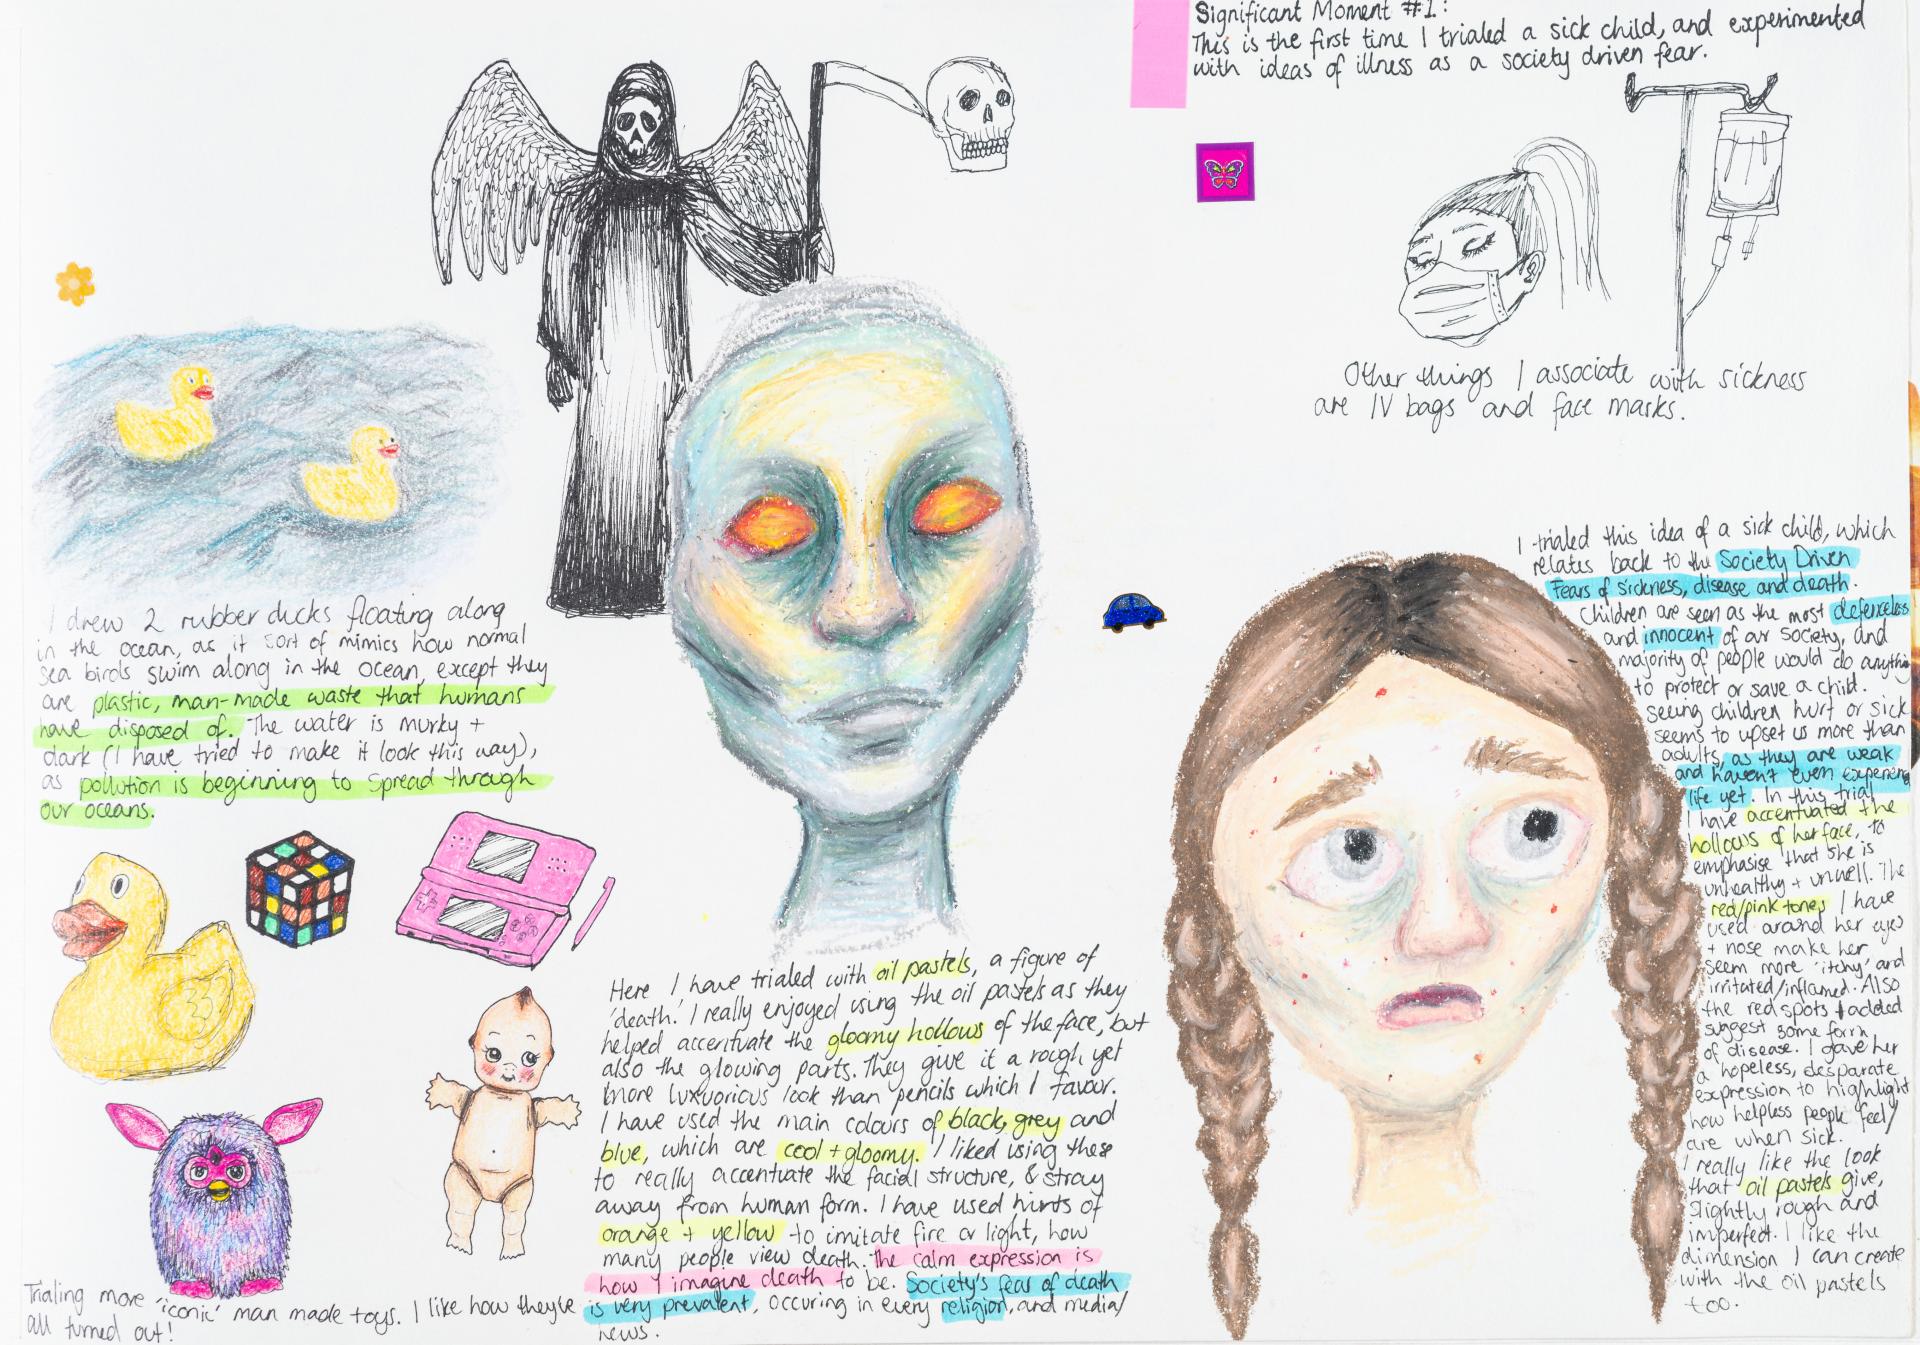 Significant Moment #1:
This is the first time I trialed a sick child, and experimented
with ideas of illness as a society driven fear.
Other things I associate with sickness
are IV bags and face masks.
I drew 2 rubber ducks floating along
in the ocean, as it sort of mimics how normal
sea birds swim along in the ocean, except they
are plastic, man-made waste that humans
have disposed of. The water is murky +
dark (I have tried to make it look this way),
as pollution is beginning to spread through
our oceans.
Trialing more 'iconic' man made toys. I like how they've
all turned out!
Here I have trialed with oil pastels, a figure of
'death.' I really enjoyed using the oil pastels as they
helped accentuate the gloomy hollows of the face, but
also the glowing parts. They give it a rough, yet
more luxuorious look than pencils which I favour.
I have used the main colours of black, grey and
blue, which are cool + gloomy. I liked using these
to really accentuate the facial structure, & stray
away from human form. I have used hints of
orange + yellow to imitate fire or light, how
many people view death. The calm expression is
how I imagine death to be. Society's fear of death
is very prevalent, occuring in every religion, and media/
news.
I trialed this idea of a sick child, which
relates back to the Society Driven
Fears of sickness, disease and death.
Children are seen as the most defenceless
and innocent of our society, and
majority of people would do anything
to protect or save a child.
seeing children hurt or sick
seems to upset us more than
adults, as they are weak
and haven't even experienced
life yet. In this trial
I have accentuated the
hollows of her face, to
emphasise that she is
unhealthy + unwell. The
red/pink tones I have
used around her eyes
+ nose make her
seem more 'itchy' and
irritated/inflamed. Also
the red spots I added
suggest some form
of disease. I gave her
a hopeless, desparate
expression to highlight
how helpless people feel/
are when sick.
I really like the look
that oil pastels give,
slightly rough and
imperfect. I like the
dimension I can create
with the oil pastels
too.